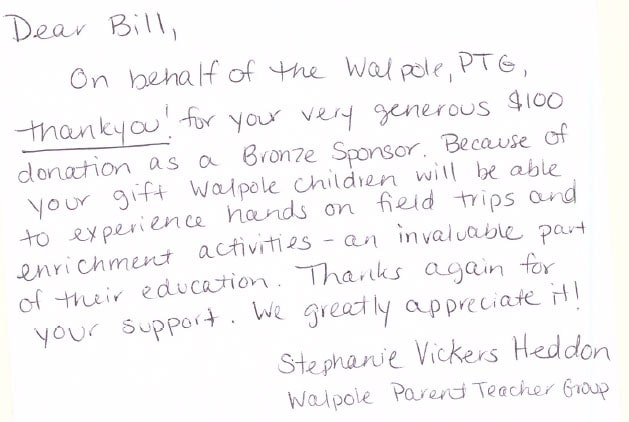 Dear Bill,
On behalf of the Walpole, PTG,
thankyou! for your very generous $100
donation as a Bronze Sponsor. Because of
your gift Walpole children will be able
to experience hands on field trips and
enrichment activities - an invaluable part
of their education. Thanks again for
your support. We greatly appreciate it!
Stephanie Vickers Heddon
Walpole Parent Teacher Group